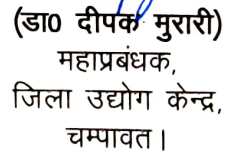 (डा0 दीपक मुरारी)
महाप्रबंधक,
जिला उद्योग केन्द्र,
चम्पावत।